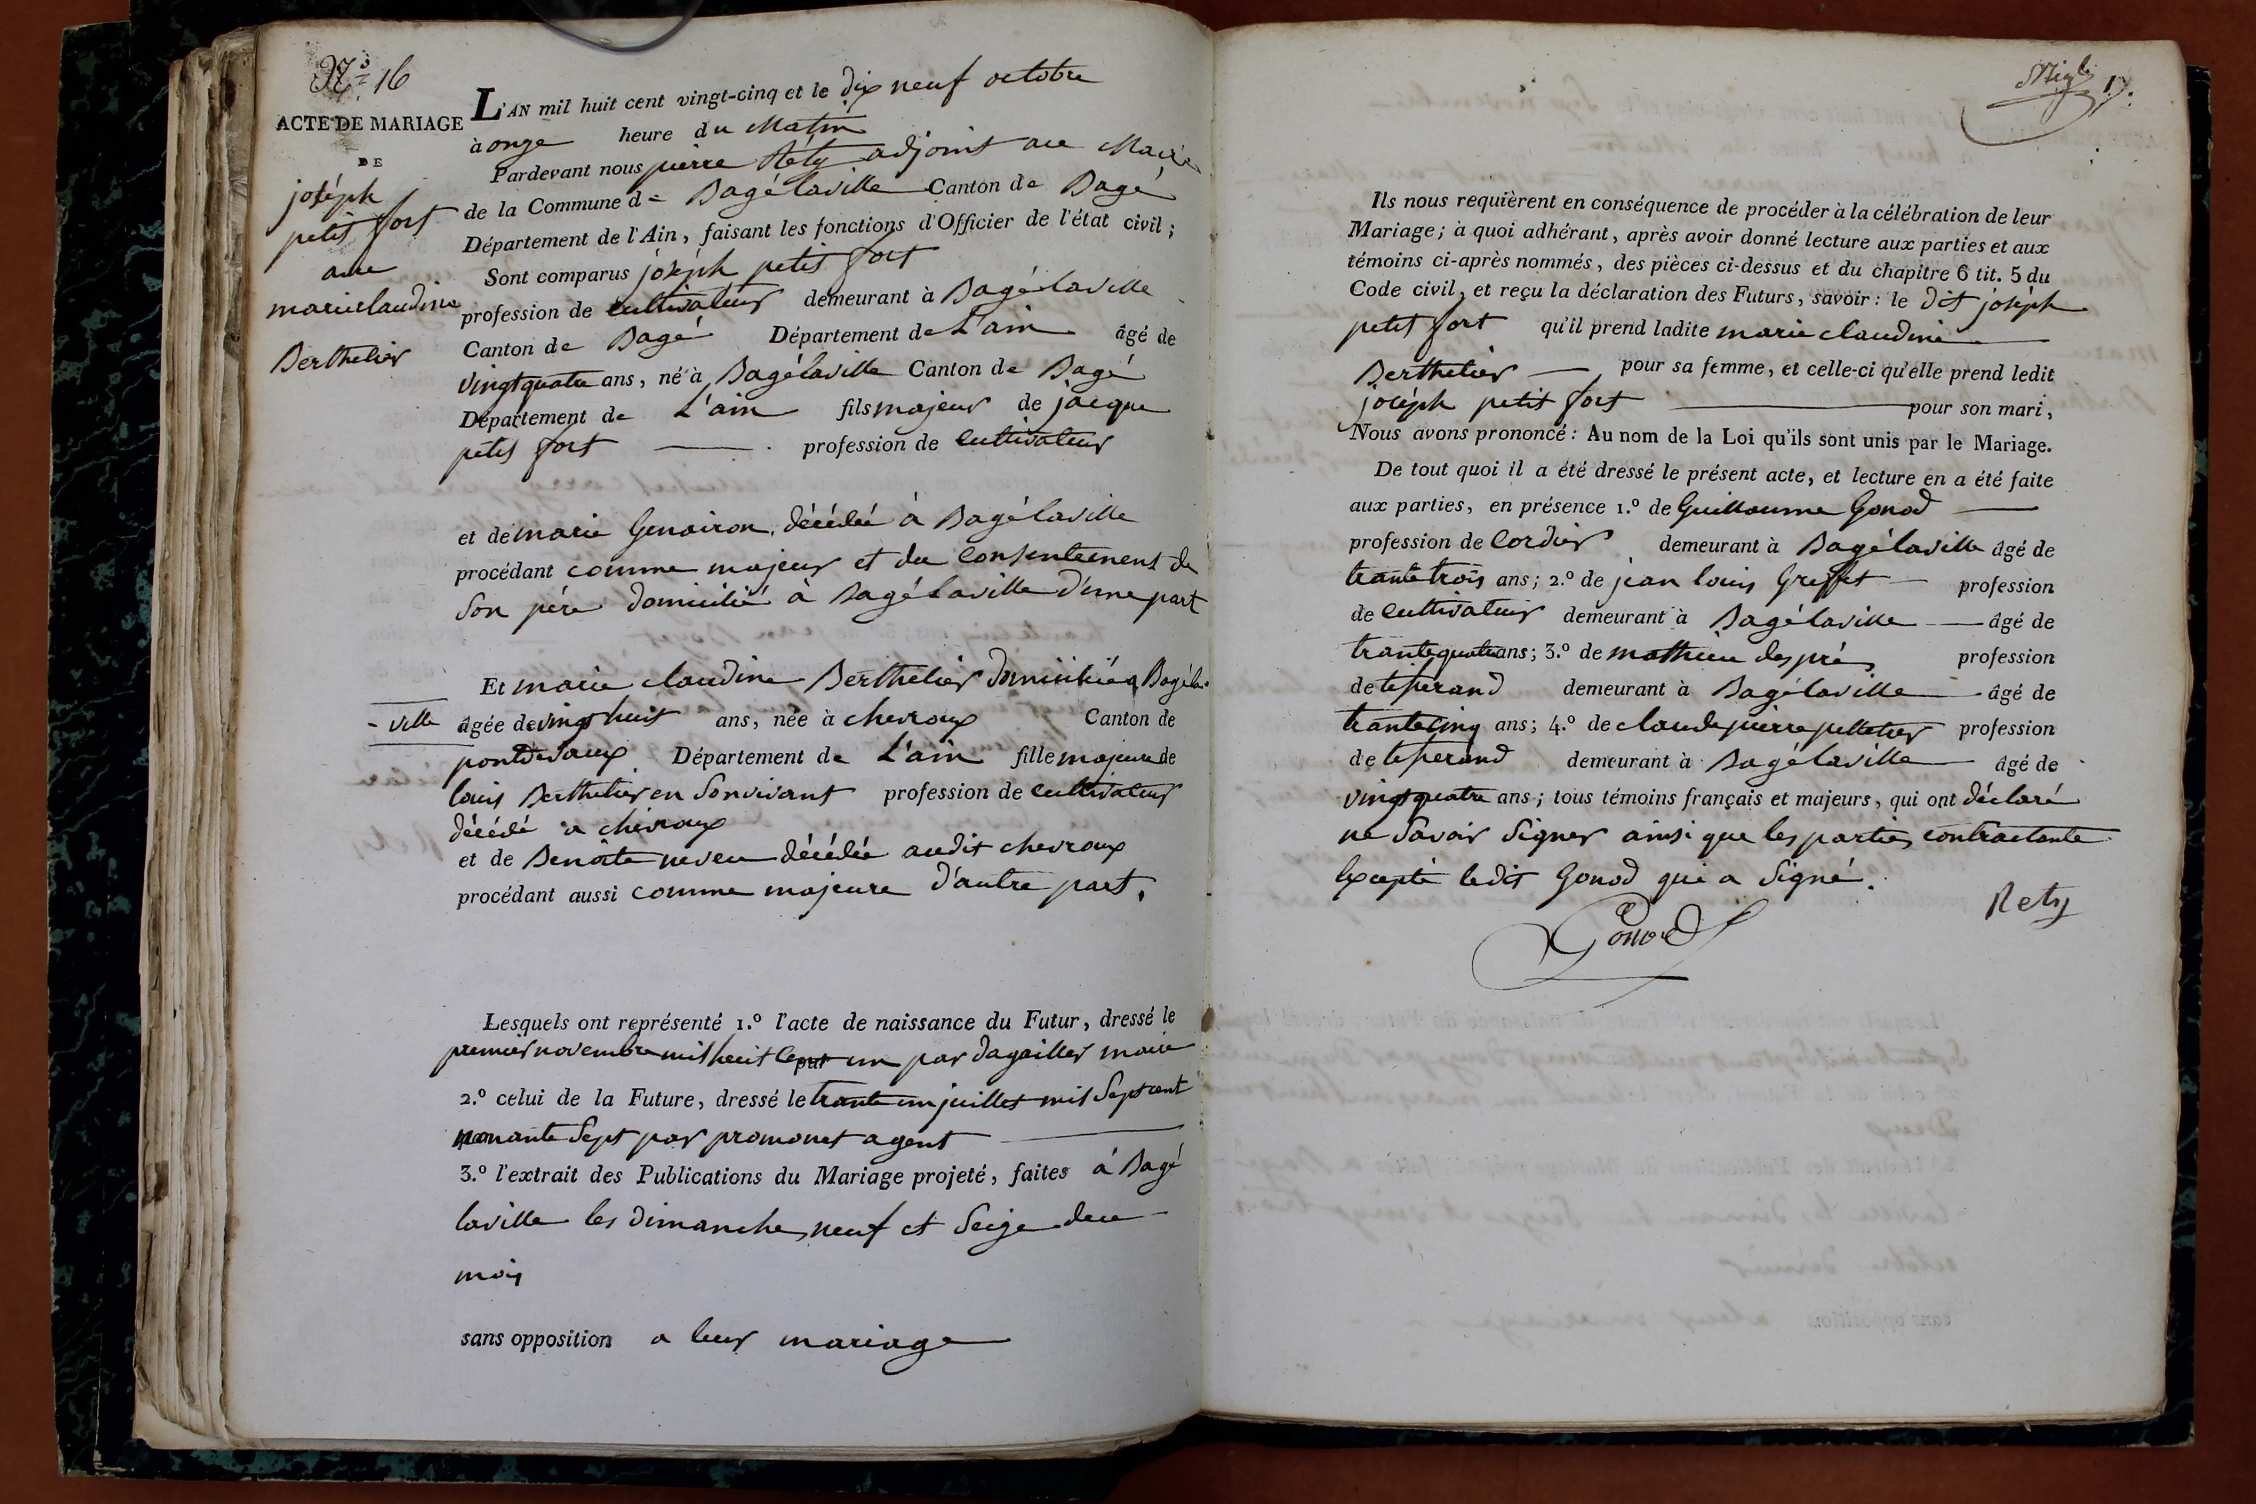 N.° 16
ACTE DE MARIAGE
DE
joséph
petit fort
aue
marie claudine
Berthelier
L'AN mil huit cent vingt-cinq et le dix neuf octobre
à onze heure du Matin
Pardevant nous pierre Réty adjoint au Maire
de la Commune de Bagé laville Canton de Bagé
Département de l'Ain, faisant les fonctions d'Officier de l'état civil;
Sont comparus joséph petit fort
profession de cultivateur demeurant à Bagé laville
Canton de Bagé Département de L'ain âgé de
vingt quatre ans, né à Bagé laville Canton de Bagé
Département de L'ain fils majeur de jacque
petit fort profession de cultivateur
et de marie Genairon, décédée à Bagé laville
procédant comme majeur et du consentement de
Son pére domicilié à Bagé laville d'une part
Et marie claudine Berthelier domiciliée a Bagé la-
- ville âgée de vingt huit ans, née à chevroux Canton de
pontdevaux Département de L'ain fille majeure de
louis Berthelier en Sonvivant profession de cultivateur
décédé a chevroux
et de Benoite neveu décédée audit chevroux
procédant aussi comme majeure d'autre part,
Lesquels ont représenté 1.° l'acte de naissance du Futur, dressé le
premier novembre mil huit cent un par dagailler maire
2.° celui de la Future, dressé le trante un juillet mil Sept cent
nonante Sept par promonet agent
3.° l'extrait des Publications du Mariage projeté, faites à Bagé
laville les dimanche neuf et Seize duu
mois
sans opposition a leur mariage
17.
Ils nous requièrent en conséquence de procéder à la célébration de leur
Mariage; à quoi adhérant, après avoir donné lecture aux parties et aux
témoins ci-après nommés, des pièces ci-dessus et du chapitre 6 tit. 5 du
Code civil, et reçu la déclaration des Futurs, savoir: le dit joséph
petit fort qu'il prend ladite marie claudine
Berthelier pour sa femme, et celle-ci qu'elle prend ledit
joséph petit fort pour son mari,
Nous avons prononcé: Au nom de la Loi qu'ils sont unis par le Mariage.
De tout quoi il a été dressé le présent acte, et lecture en a été faite
aux parties, en présence 1.° de Guillaume Gonod
profession de Cordier demeurant à Bagé laville âgé de
trante trois ans; 2.° de jean louis Greffet profession
de cultivateur demeurant à Bagé laville âgé de
trante quatre ans; 3.° de mathieu des prés profession
de tisserand demeurant à Bagé laville âgé de
trante cinq ans; 4.° de claude pierre pelletier profession
de tisserand demeurant à Bagé laville âgé de
vingt quatre ans; tous témoins français et majeurs, qui ont déclaré
ne Savoir Signer ainsi que les parties contractante
Excepté ledit Gonod qui a Signé.
Rety
Gonod